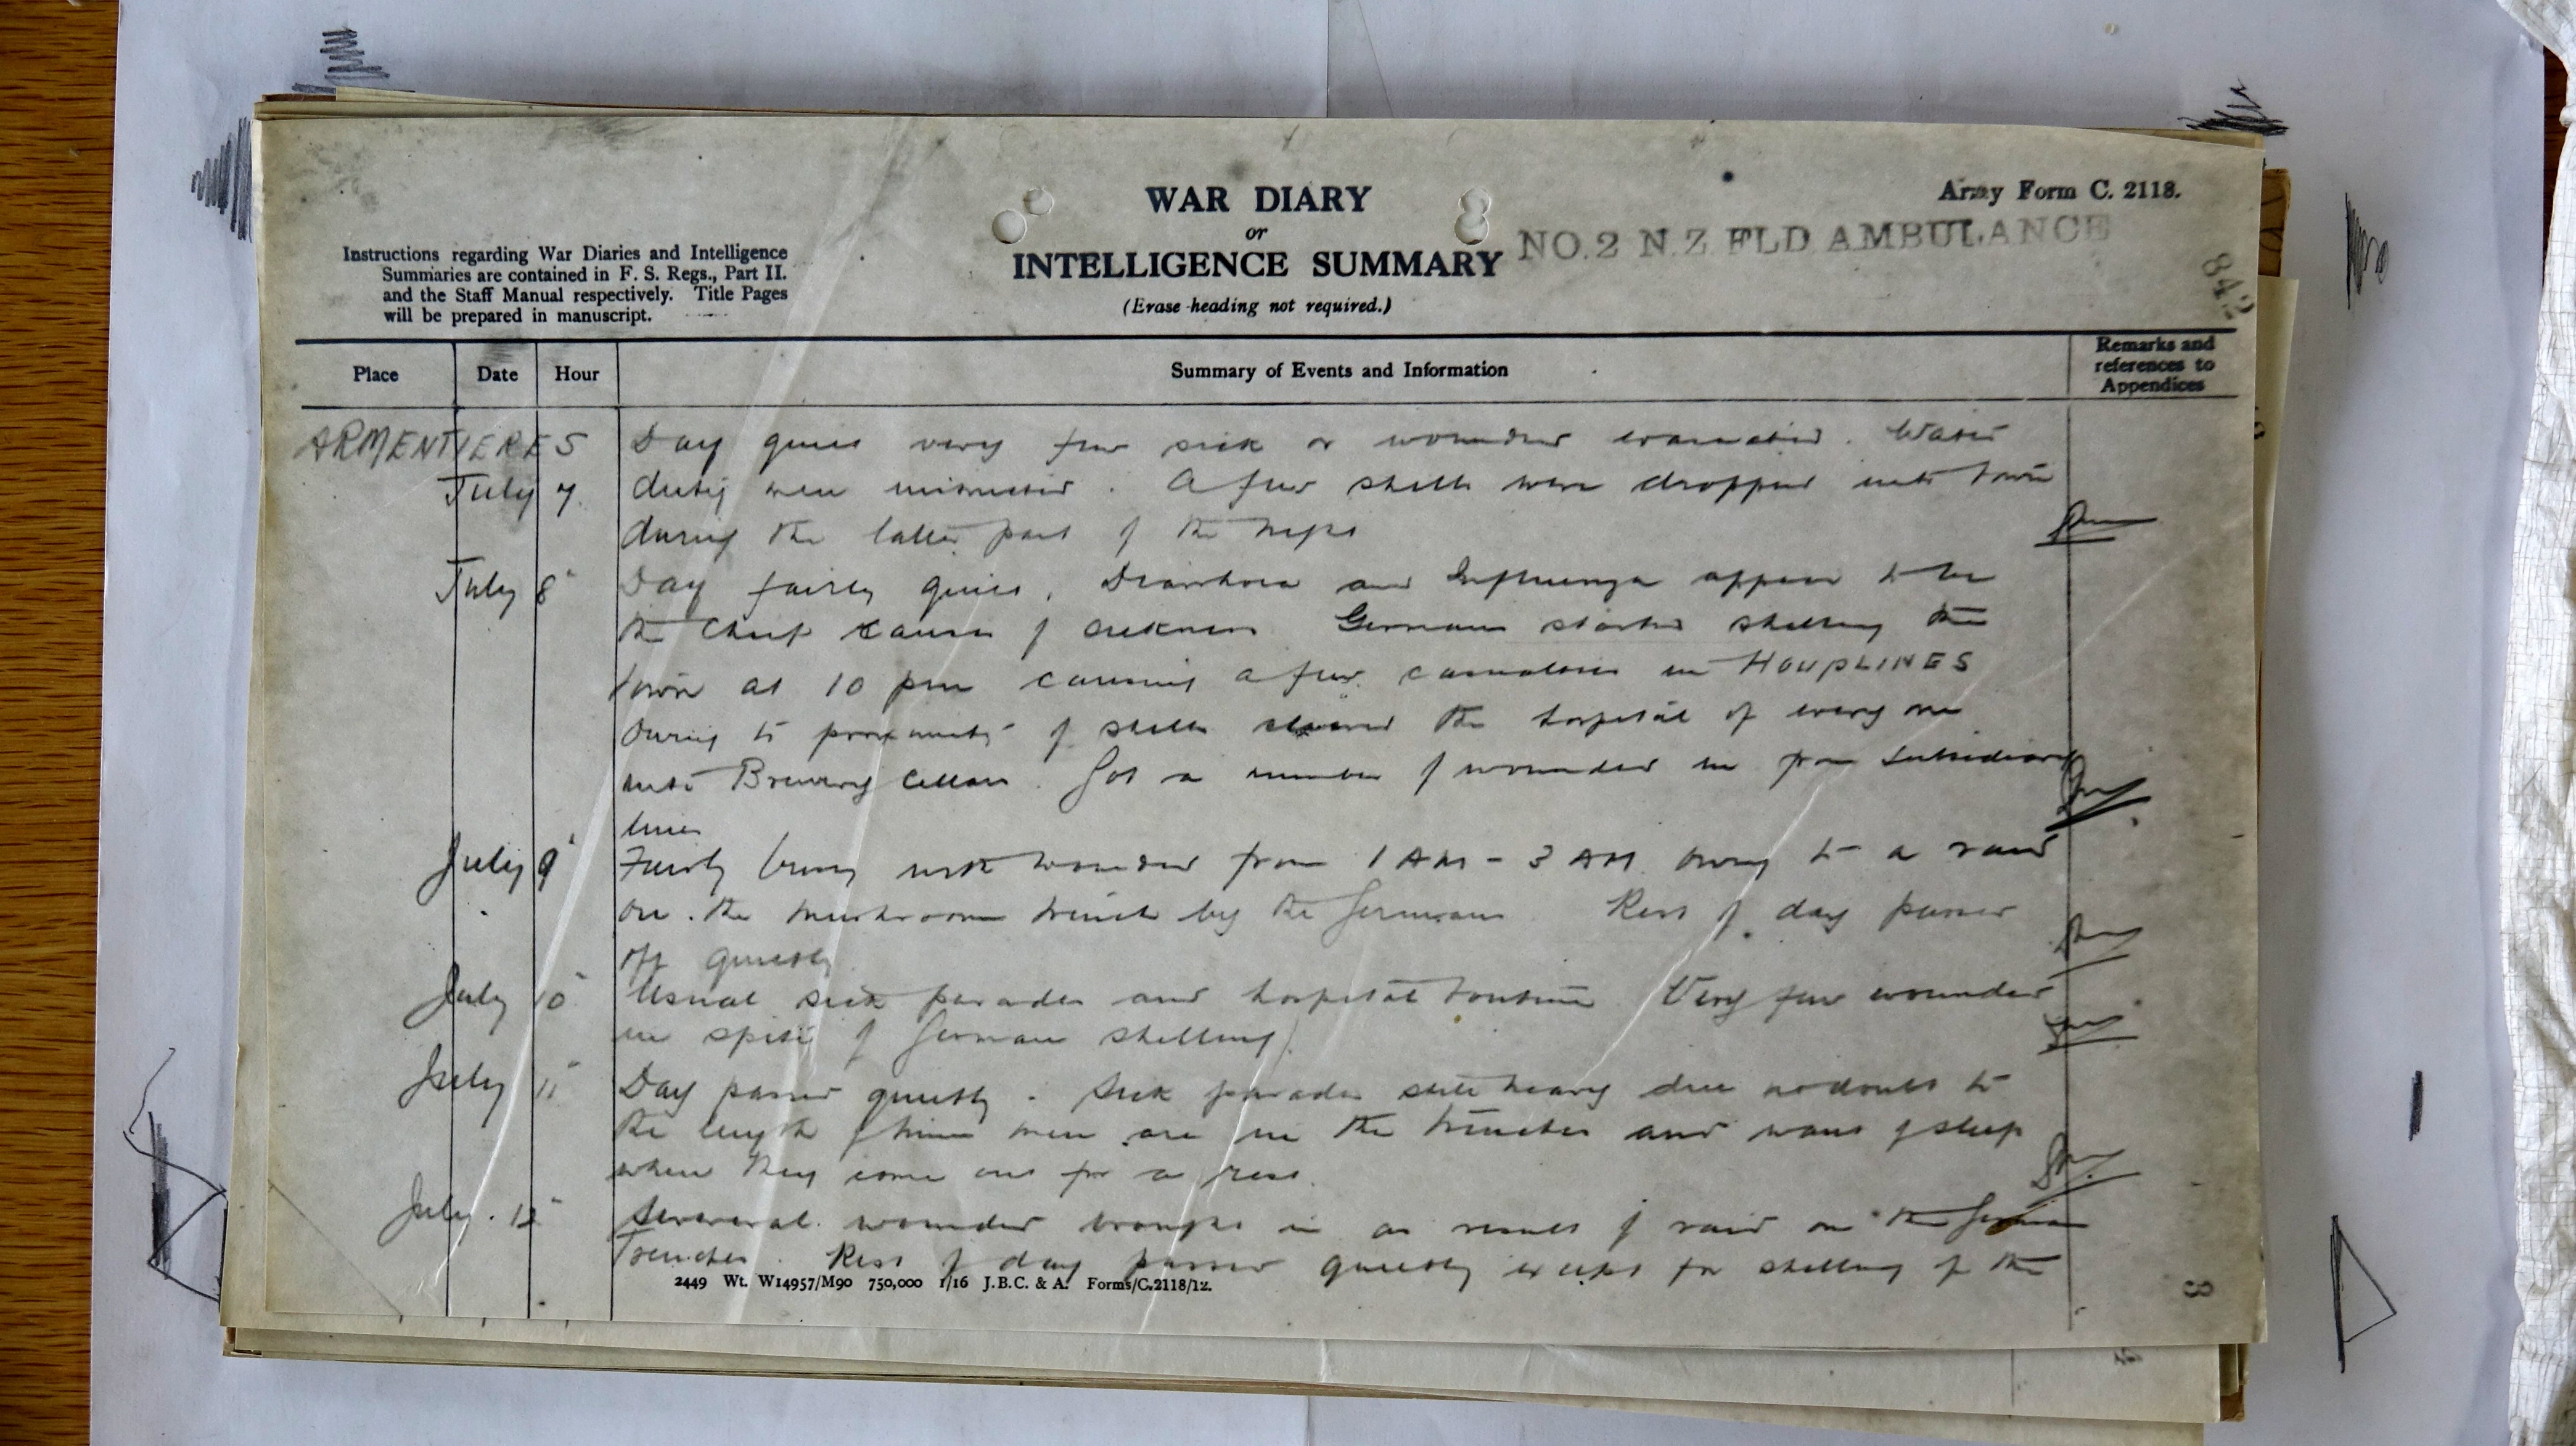 WAR DIARY
or
INTELLIGENCE SUMMARY
(Erase heading not required.)
Army Form C. 2118.
NO. 2 N.Z. FLD AMBULANCE
842
Instructions regarding War Diaries and Intelligence
Summaries are contained in F. S. Regs., Part II.
and the Staff Manual respectively. Title Pages
will be prepared in manuscript.
Place Date Hour Summary of Events and Information Remarks and references to Appendices
ARMENTIERES Day quiet very few sick or wounded evacuated. Water
July 7 duties were instructed. A few shells were dropped into town
during the latter part of the night
July 8 Day fairly quiet. Diarrhoea and Influenza appear to be
the chief causes of sickness Germans started shelling the
town at 10 pm causing a few casualties in HOUPLINES
Owing to proximity of shells cleared the hospital of every one
into Brewery Cellars. Got a number of wounded in from Subsidiary
line
July 9 Fairly busy with wounded from 1 AM - 3 AM owing to a raid
on the mushroom trench by the Germans Rest of day passed
off quietly
July 10 Usual sick parades and hospital routine Very few wounded
in spite of German shelling.
July 11 Day passed quietly. Sick parades still heavy due no doubt to
the length of time men are in the trenches and want of sleep
when they come out for a rest.
July 12 Severeral wounded brought in as result of raid on the German
Trenches. Rest of day passed quietly except for shelling of the
2449 Wt. W14957/M90 750,000 1/16 J.B.C. & A. Forms/C.2118/12.
8